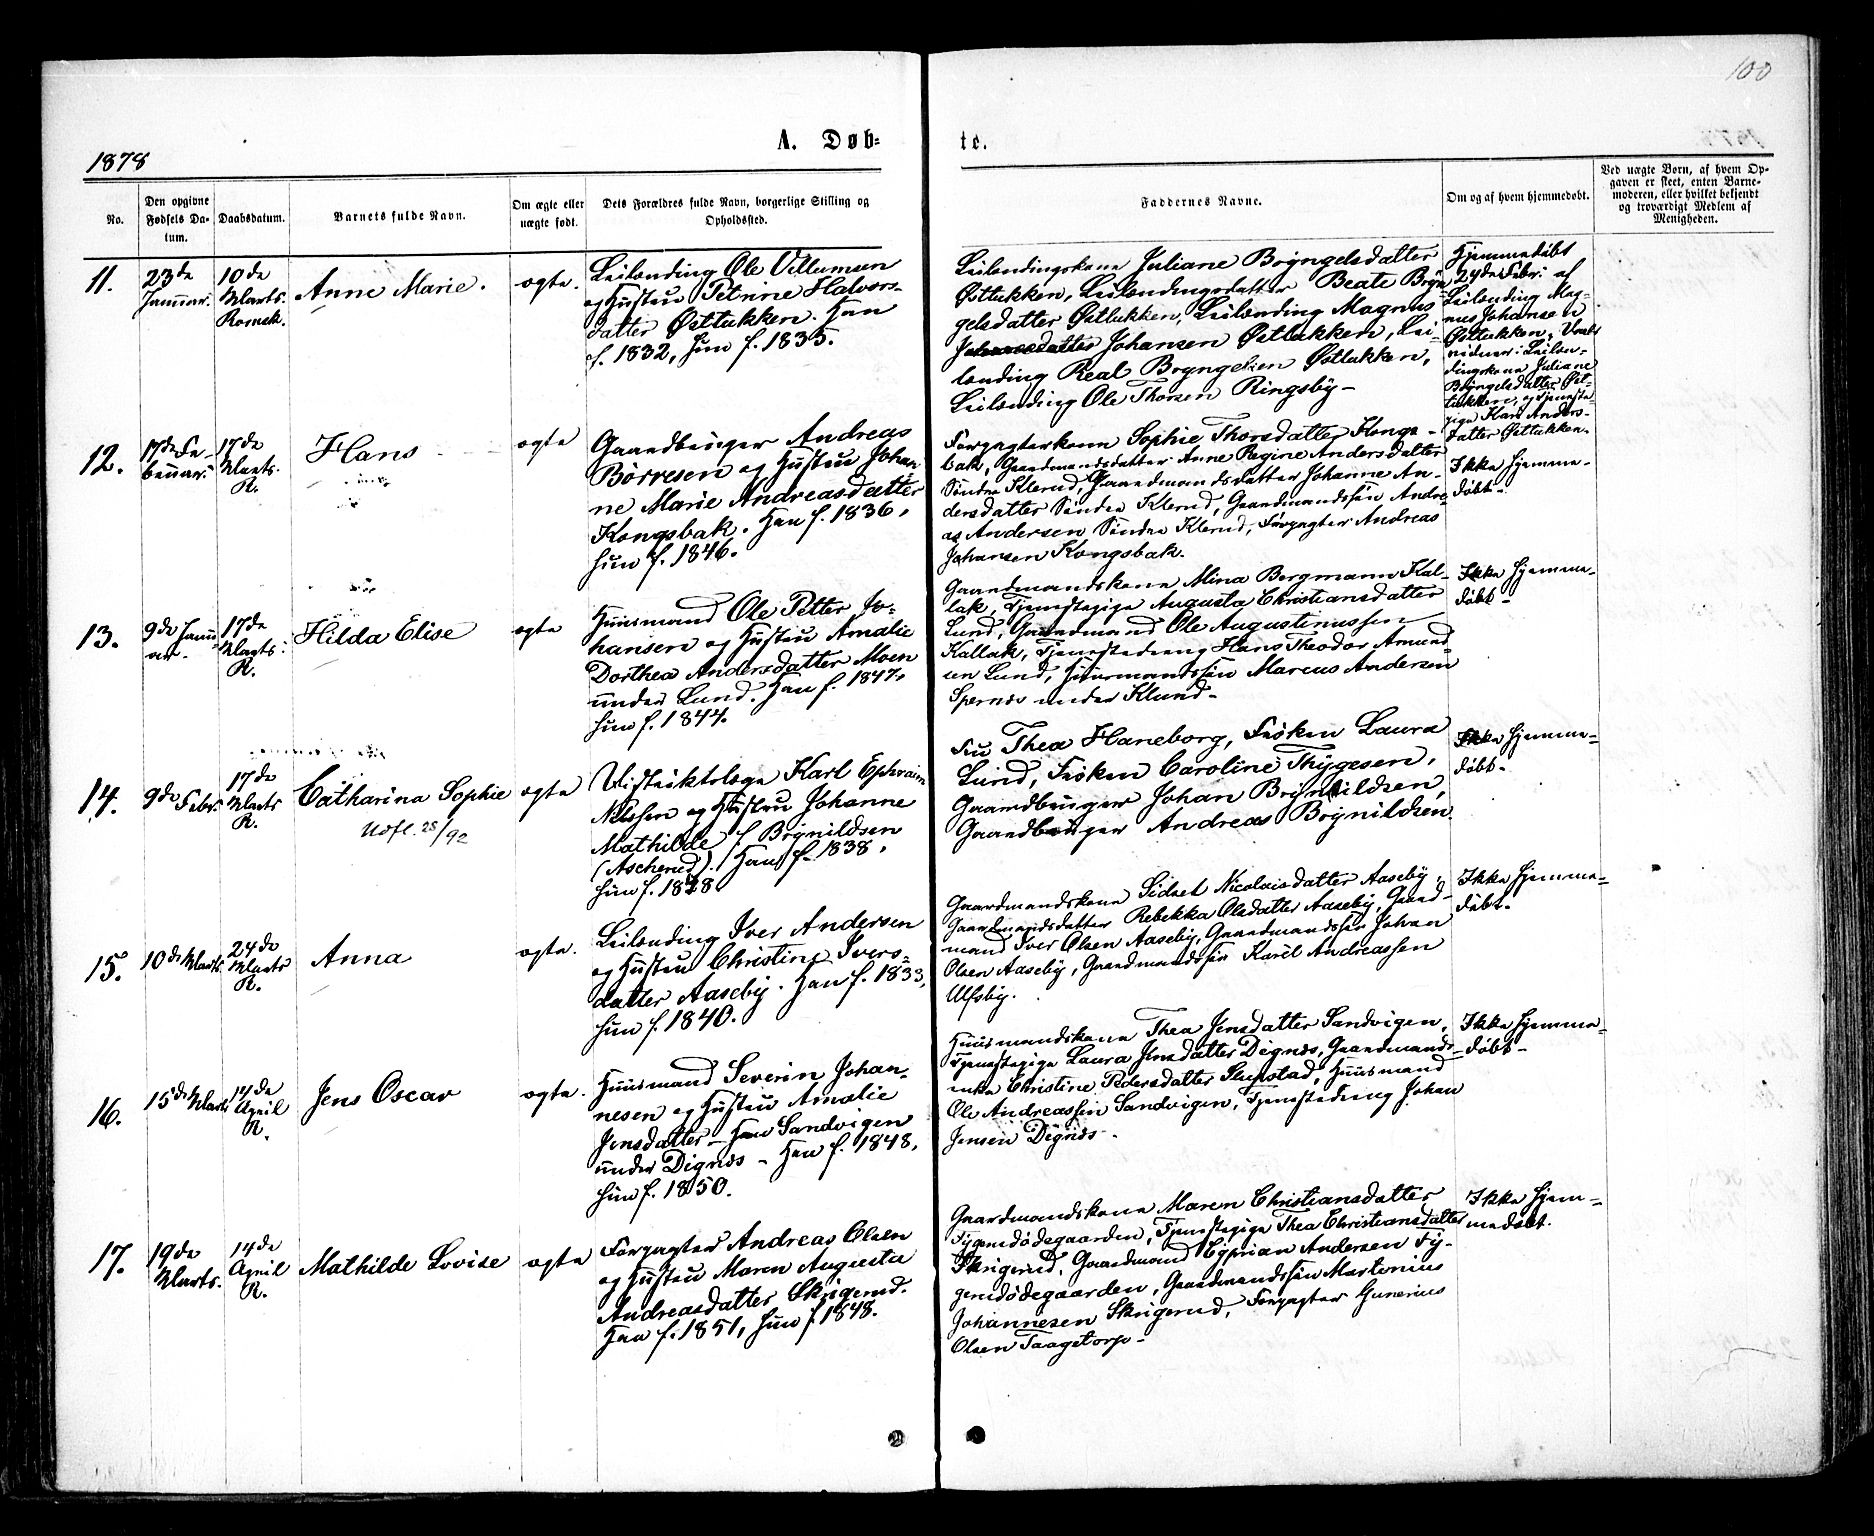 100
1878
A. Døb-
te.
No.
Den opgivne Fødsels Da-
tum.
Daabsdatum.
Barnets fulde Navn.
Om ægte eller
uægte født.
Dets Forældres fulde Navn, borgerlige Stilling og
Opholdssted.
Faddernes Navne.
Om og af hvem hjemmedøbt.
Ved uægte Børn, af hvem Op-
gaven er skeet, enten Barne-
moderen, eller hvilket bekjendt
og troværdigt Medlem af
Menigheden.
11.
23de
Januar.
10de
Marts.
Romsk.
Anne Marie.
ægte.
Leilænding Ole Villumsen
og Hustru Petrine Halvors-
datter Østlukken. Han
f. 1832, hun f. 1835.
Leilændingskone Juliane Bryngelsdatter
Østlukken, Leilændingsdatter Beate Bryn-
gelsdatter Østlukken, Leilænding Magnus
Johansen Østlukken, Lei-
lænding Real Bryngelsen Østlukken,
Leilænding Ole Thorsen Ringsby-
Hjemmedøbt
Febr: af
Leilænding Mag-
nus Johansen
Østlukken.
vidner: Leilæn-
dingskone Juliane
Bryngelsdatter Øst-
lukken, og Tjeneste-
pige Kari Anders-
datter Østlukken.
12.
17de Fe-
bruar.
17de
Marts.
R.
Hans
ægte
Gaardbruger Andreas
Børresen og Hustru Johan
ne Marie Andreasdatter
Kongsbak. Han f. 1836,
hun f. 1846.
Forpagterkone Sophie Thorsdatter Kongs-
bak, Gaardmandsdatter Anne Regine Andersdatter
Søndre Klerud, Gaardmandsdatter Johanne An-
dersdatter Søndre Klerud, Gaardmandssøn Andre-
as Andersen Søndre Klerud, Forpagter Andreas
Johansen Kongsbak.
Ikke hjemme-
døbt-
13.
9de Janu
ar-
17de
Marts.
R.
Hilda Elise
ægte
Huusmand Ole Petter Jo-
hansen og Hustru Amalie
Dorthea Andersdatter Moen
under Lund. Han f. 1847,
hun f. 1844.
Gaardmandskone Mina Bergmann Kal-
lak, Tjenestepige Augusta Christiansdatter
Lund, Gaardmand Ole Augustinussen
Kallak, Tjenestedreng Hans Theodor Amund-
sen Lund, Huusmandssøn Marcus Andersen
Spernes under Klund-
Ikke hjemme-
døbt-
14.
9de Febr.
17de
Marts
R.
Catharina Sophie
Udfl. 28/92
ægte
Distriktslæge Karl Ephraim
Nissen og Hustru Johanne
Mathilde f. Brynildsen
(Ascherud). Han f. 1838,
hun f. 1848
Fru Thea Haneborg, Frøken Laura
Lund, Frøken Caroline Thygesen,
Gaardbruger Johan Brynildsen,
Gaardbruger Andreas Brynildsen.
Ikke hjemme-
døbt.
15.
10de Marts.
24de
Marts
R.
Anna
ægte.
Leilænding Iver Andersen
og Hustru Christine Ivers-
datter Aaseby. Han f. 1833,
hun f. 1840.
Gaardmandskone Sidset Nicolaisdatter Aaseby,
Gaardmandsdatter Rebekka Olsdatter Aaseby, Gaard-
mand Iver Olsen Aaseby, Gaardmandssøn Johan
Olsen Aaseby, Gaardmandssøn Karèl Andreassen
Ulfsby.
Ikke hjemme-
døbt.
16.
15de Marts
14de
April
R.
Jens Oscar
ægte.
Huusmand Severin Johan-
nesen og Hustru Amalie
Jensdatter - Sandvigen
under Digenes - Han f. 1848,
hun f. 1850.
Huusmandskone Thea Jensdatter Sandvigen,
Tjenestepige Laura Jensdatter Digenes, Gaardmands-
enke Christine Pedersdatter Slupstad, Huusmand
Ole Andreassen Sandvigen, Tjenestedreng Johan
Jensen Digenes.
Ikke hjemme-
døbt-
17.
19de
Marts.
14de
April
R.
Mathilde Lovise
ægte
Forpagter Andreas Olsen
og Hustru Maren Augusta
Andreasdatter Skrigerud.
Han f. 1851, hun f. 1848.
Gaardmandskone Maren Christiansdatter
Tygenødegaarden, Tjenestepige Thea Christiansdatter
Skrigerud, Gaardmand Cyprian Andersen Ty-
genødegaarden, Gaardmandssøn Martenius
Johannesen Skrigerud, Forpagter Gunerius
Olsen Taagetorp-
Ikke hjem-
medøbt.